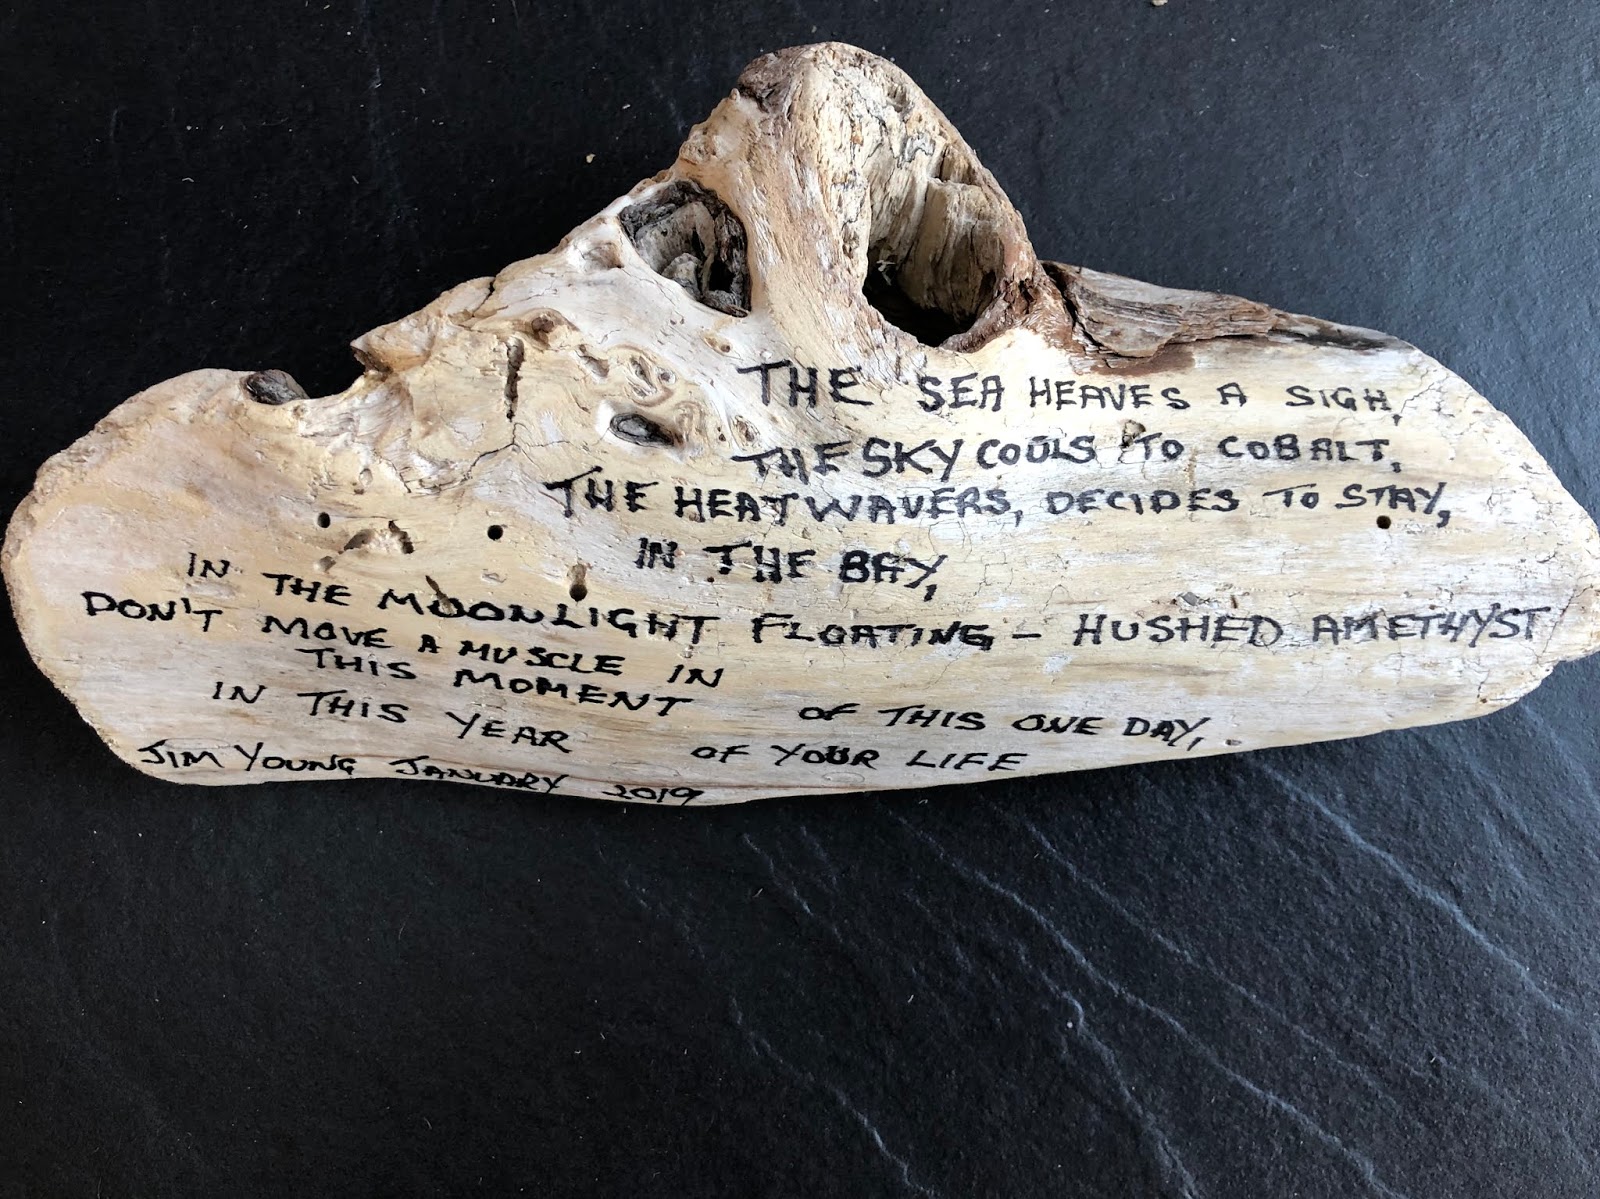 THE SEA HEAVES A SIGH,
THE SKY COOLS TO COBALT,
THE HEAT WAVERS, DECIDES TO STAY,
IN THE BAY,
IN THE MOONLIGHT FLOATING – HUSHED AMETHYST
DON'T MOVE A MUSCLE IN
THIS MOMENT OF THIS ONE DAY,
IN THIS YEAR OF YOUR LIFE
JIM YOUNG JANUARY 2019